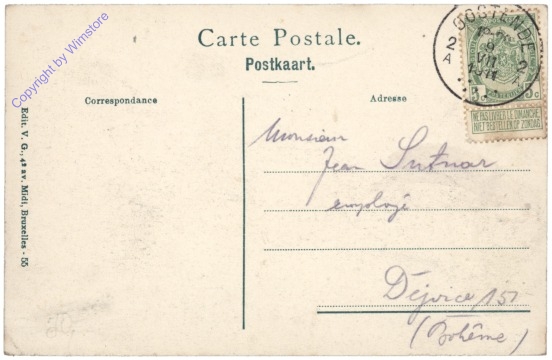 Carte Postale.
Postkaart.
Correspondance
Adresse
OOSTENDE
2 2
A
9
VII
1911
NE PAS LIVRER LE DIMANCHE
NIET BESTELLEN OP ZONDAG
Monsieur
Jean Sutnar
employé
Dějvice 151
(Bohême)
Edit. V. G., 42 av. Midi, Bruxelles - 55
Copyright by Wimstore